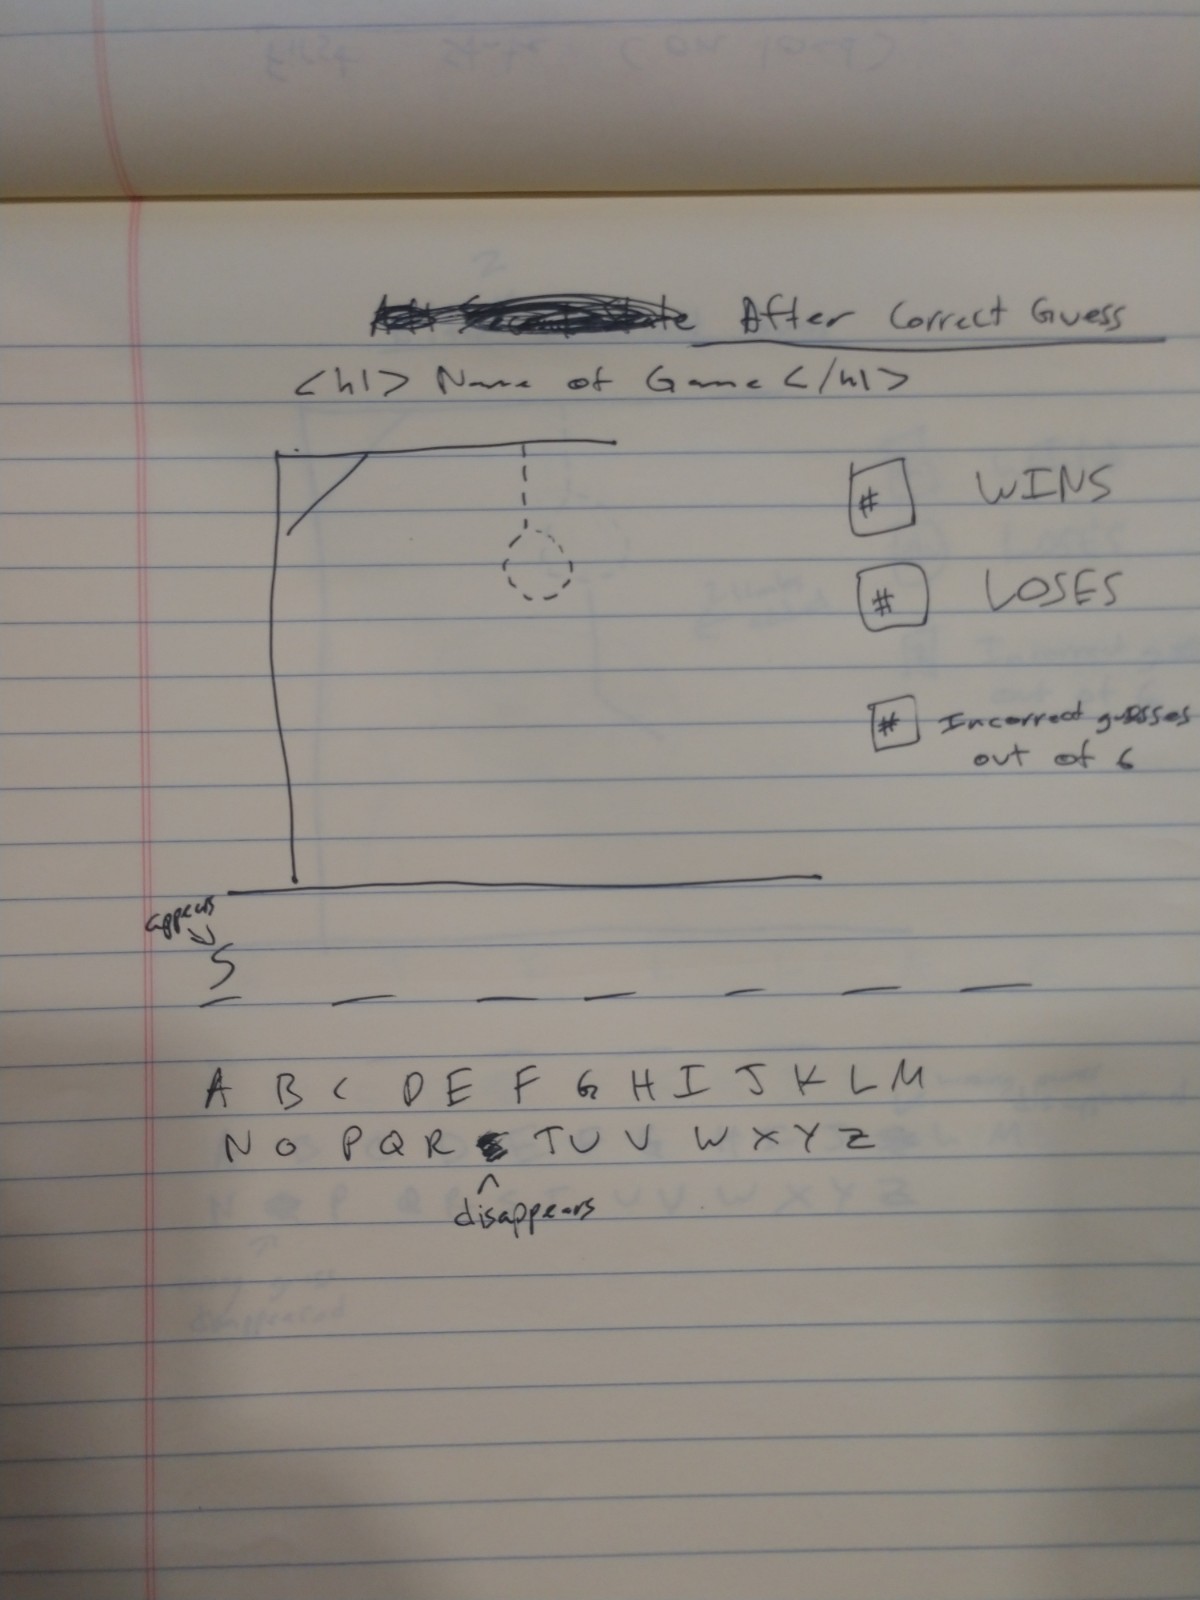 After Correct Guess
<h1> Name of Game </h1>
# WINS
# LOSES
# Incorrect guesses
out of 6
appears
S
A B C D E F G H I J K L M
N O P Q R T U V W X Y Z
^
disappears